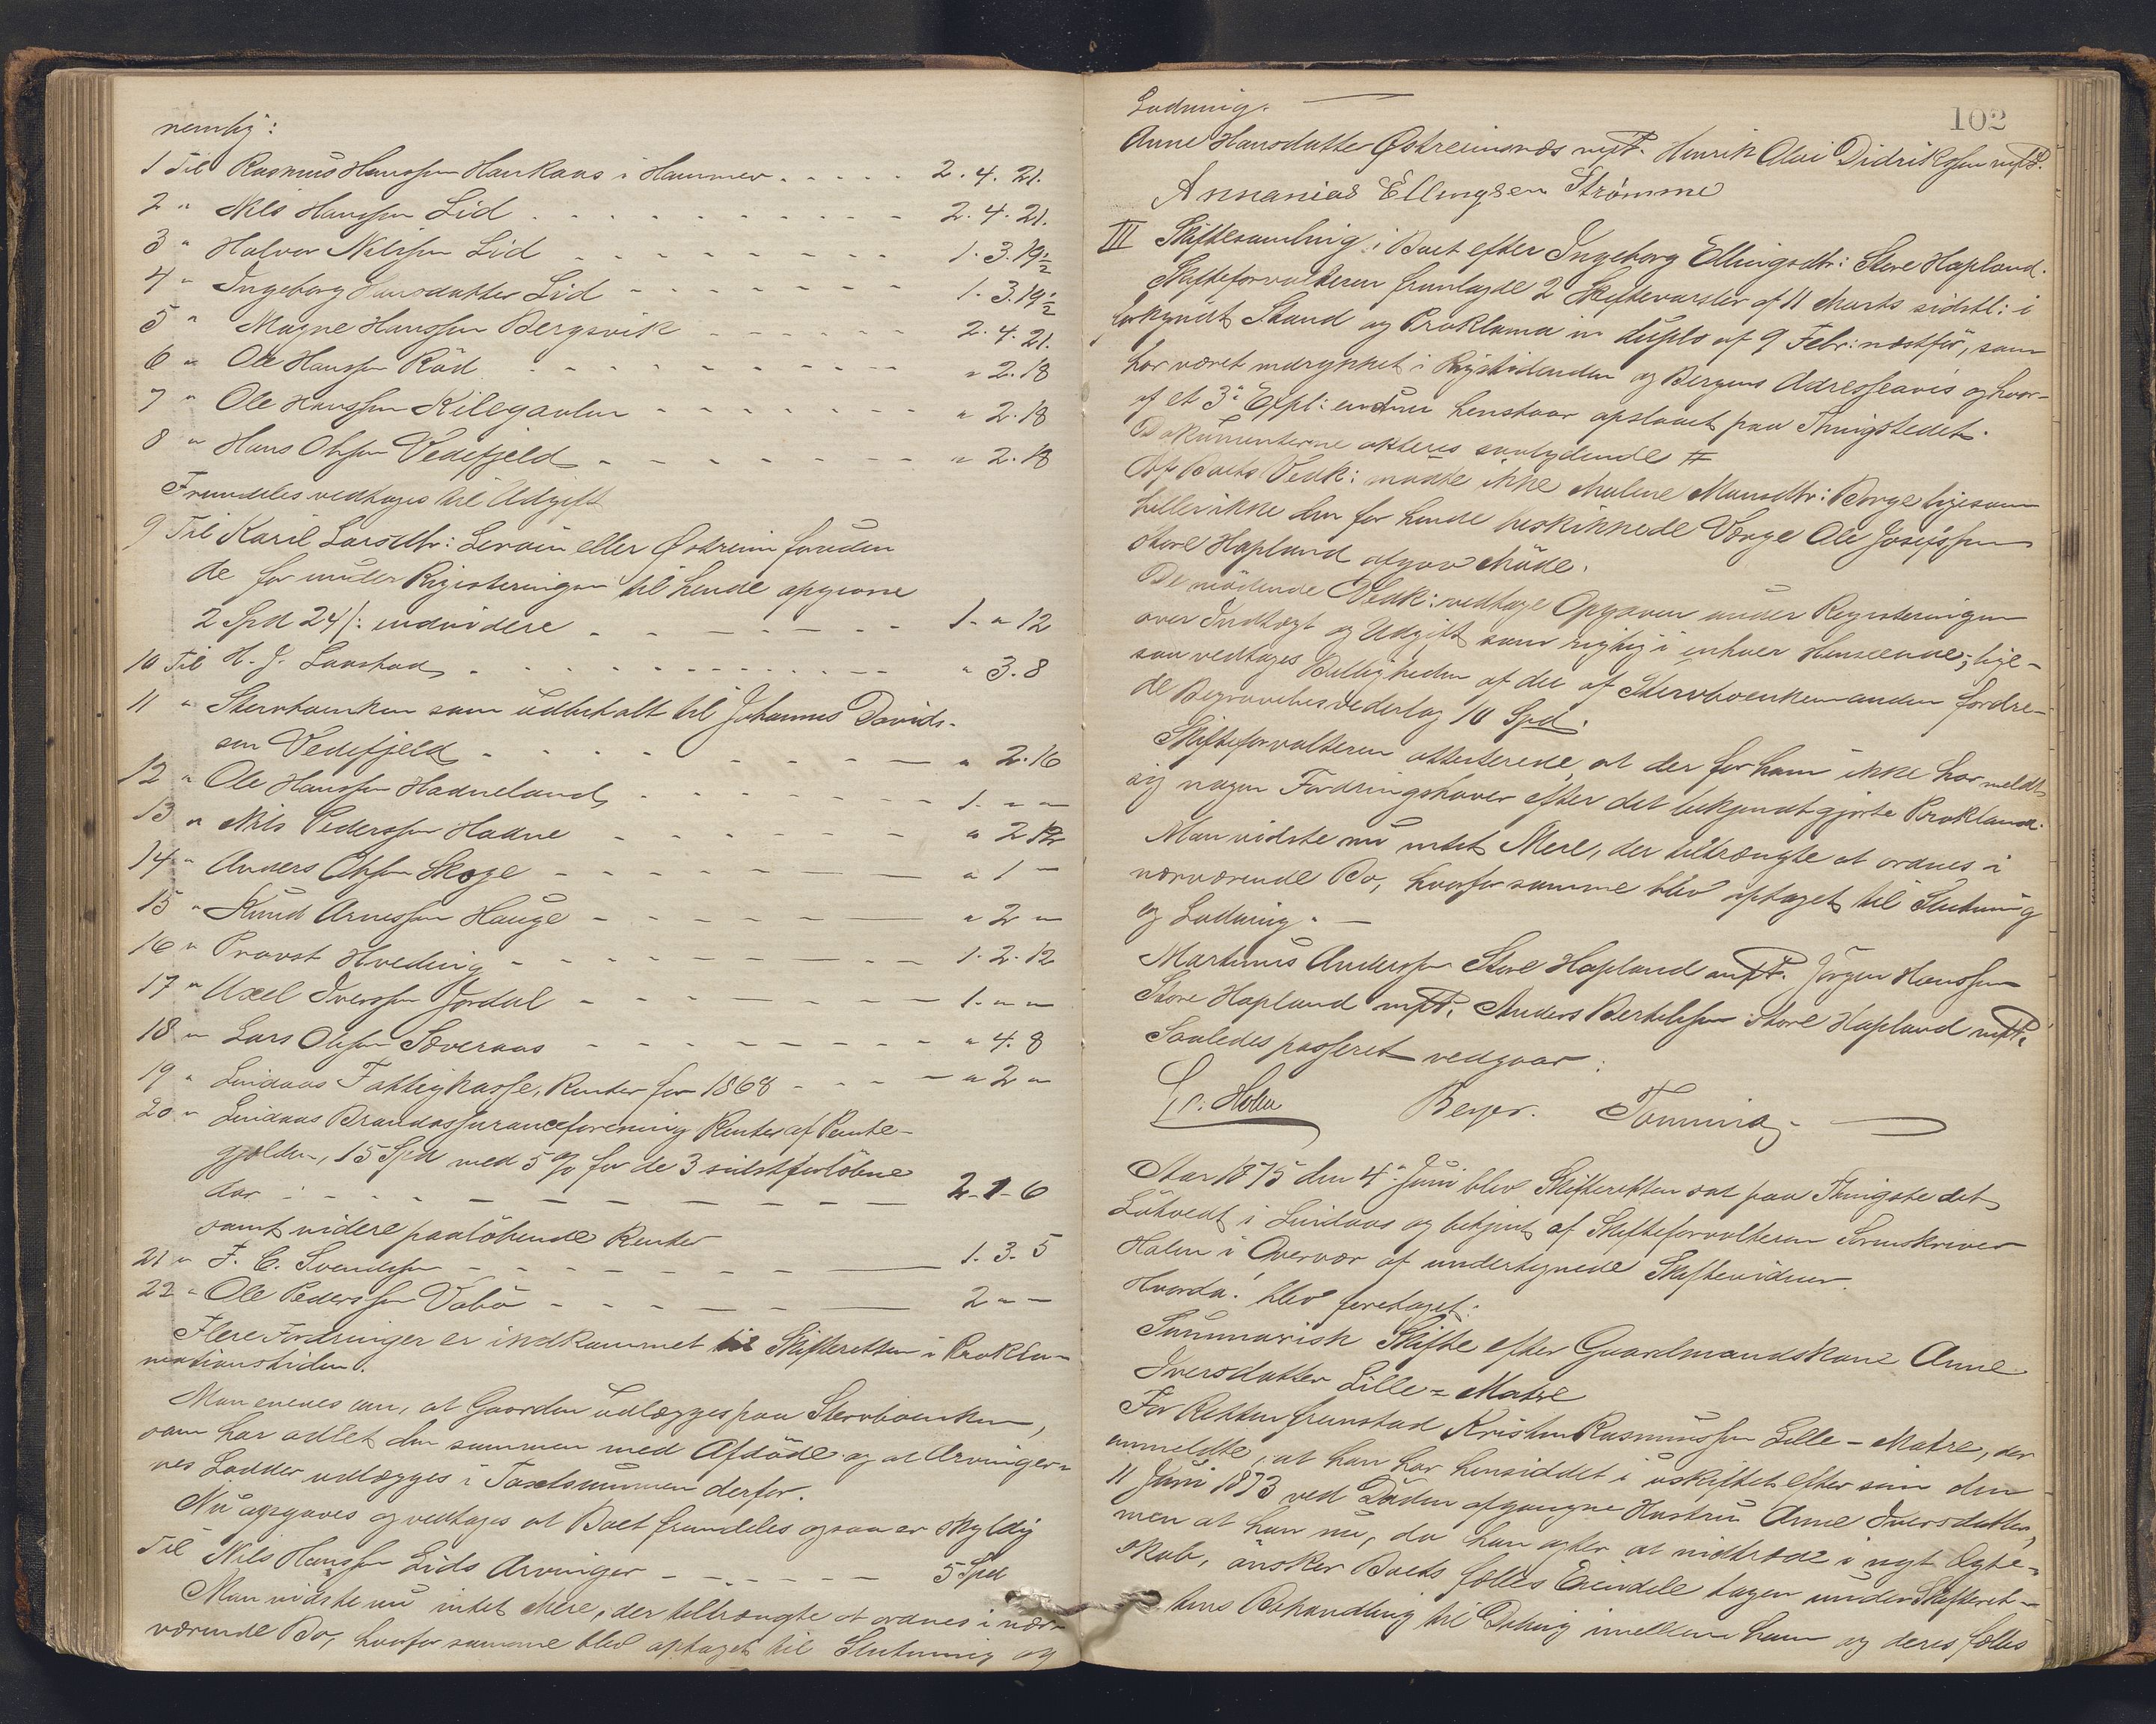 nemlig:
1 Til Rasmus Hanssen Haukaas i Hammer . . . . . 2. 4. 21.
2 " Nils Hanssen Lid . . . . . . . . . . . 2. 4. 21.
3 " Halvor Nilssen Lid - - - - - - - - - 1. 3. 19½
4 " Ingeborg Hansdatter Lid - - - - - - - 1. 3. 19½
5 " Magne Hanssen Bergsvik - - - - - - 2. 4. 21.
6 " Ole Hanssen Röd - - - - - - - - - " 2. 18
7 " Ole Hanssen Kilegavlen - - - - - - - " 2. 18
8 " Hans Olssen Vedefjeld - - - - - - - - " 2. 18
Fremdeles vedtoges til Udgift
9 Til Karil Larsdtr: Lervin eller Östreim foruden
de før under Registeringen til hende opgivne
2 Spd 24 /: endvidere - - - - - - - 1. " 12
10 Til H. J. Laastad - - - - - - - - " 3. 8
11 " Stervboenken som udbetalt til Johannes Davids-
sen Vedefjeld - - - - - - - - " 2. 16
12 " Ole Hanssen Hadneland - - - - - - - 1. - -
13 " Nils Pederssen Hadne - - - - - - - " 2 12
14 " Anders Olssen Skoge - - - - - - - " 1 -
15 " Knud Arnessen Hauge - - - - - - " 2 "
16 " Provst Hveding - - - - - - - - - 1. 2. 12
17 " Axel Iverssen Jordal - - - - - - - 1. " "
18 " Lars Olssen Sæveraas - - - - - - - - " 4. 8
19 " Lindaas Fattigkasse, Renter for 1868 - - - - " 2 "
20 " Lindaas Brandassuranceforening Renter af Pante-
gjælden, 15 Spd med 5 % for de 3 sidstforløbne
Aar - - - - - - - - - - - 2. 1. 6
samt videre paaløbende Renter
21 " F. C. Svendsen - - - - - - - 1. 3. 5
22 " Ole Pederssen Vabö - - - - - - 2 - -
Flere Fordringer er indkommet til Skifteretten i Prokla-
mationstiden.
Man enedes om, at Gaarden udlægges paa Stervboenken,
som har odlet den sammen med Afdöde og at Arvinger-
nes Lodder udlægges i Taxtsummen derfor.
Nu opgaves og vedtoges at Boet fremdeles ogsaa er skyldig
Til Nils Hanssen Lids Arvinger - - - - - - 5 Spd
Man vidste nu intet Mere, der tiltrængte at ordnes i nær-
værende Bo, hvorfor samme blev optaget til Slutning og
102
Lodning. —
Anne Hansdatter Østreimsnæs mpP. Henrik Olai Didriksen mpP.
Annanias Ellingsen Strømme
III Skiftesamling i Boet efter Ingeborg Ellingsdtr: Store Hopland.
Skifteforvalteren fremlagde 2 Skiftevarsler af 11 Marts sidstl: i
forkyndt Stand og Proklama in duplo af 9 Febr: næstfør, som
har været indrykket i Rigstidenden og Bergens Adresseavis og hvor-
af et 3ie Expl: endnu henstaar opslaaet paa Thingstedet.
Dokumenterne akteres saalydende #
Af Boets Vedk: mødte ikke Malene Monsdtr: Borge ligesom
heller ikke den for hende beskikkede Værge Ole Josefssen
Store Hopland afgav Möde.
De mödende Vedk: vedtoge Opgaven under Registeringen
over Indtægt og Udgift som rigtig i enhver Henseende, lige-
saa vedtoges Billigheden af det af Stervboenkemanden fordre-
de Begravelsesvederlag 10 Spd.
Skifteforvalteren attesterede, at der for ham ikke har meldt
sig nogen Fordringshaver efter det bekjendtgjorte Proklama.
Man vidste nu intet Mere, der tiltrængte at ordnes i
nærværende Bo, hvorfor samme blev optaget til Slutning
og Lodning. —
Martinus Anderssen Store Hopland mpP. Jörgen Hanssen
Store Hopland mpP. Anders Bertelssen Store Hopland mpP.
Saaledes passeret vedgaar:
Holm Beyer. Tonning
Aar 1875 den 4de Juni blev Skifteretten sat paa Thingstedet
Lötvedt i Lindaas og betjent af Skifteforvalteren Sorenskriver
Holm i Overvær af undertegnede Skiftevidner.
Hvorda! blev foretaget:
Summarisk Skifte efter Gaardmandskone Anne
Iversdatter Lille-Matre
For Retten fremstod Kristen Rasmussen Lille-Matre, der
anmeldte, at han har hensiddet i uskiftet efter sin den
11 Juni 1873 ved Döden afgangne Hustru Anne Iversdatter,
men at han nu, da han agter at indtræde i nyt Ægte-
skab, önsker Boets fælles Eiendele tagen under Skifteret-
tens Behandling til Deling imellem ham og deres fælles